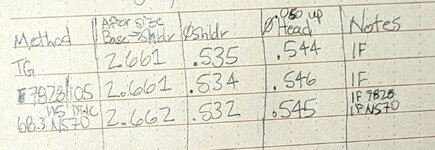 Method After size Base → Shldr Ø Shldr Ø .050 up Head Notes
TG. 2.661 .535 .544 IF
7828 105 2.661 .534 .546 IF
68.3 N570 2.662 .532 .545 IF 7828
LP N570